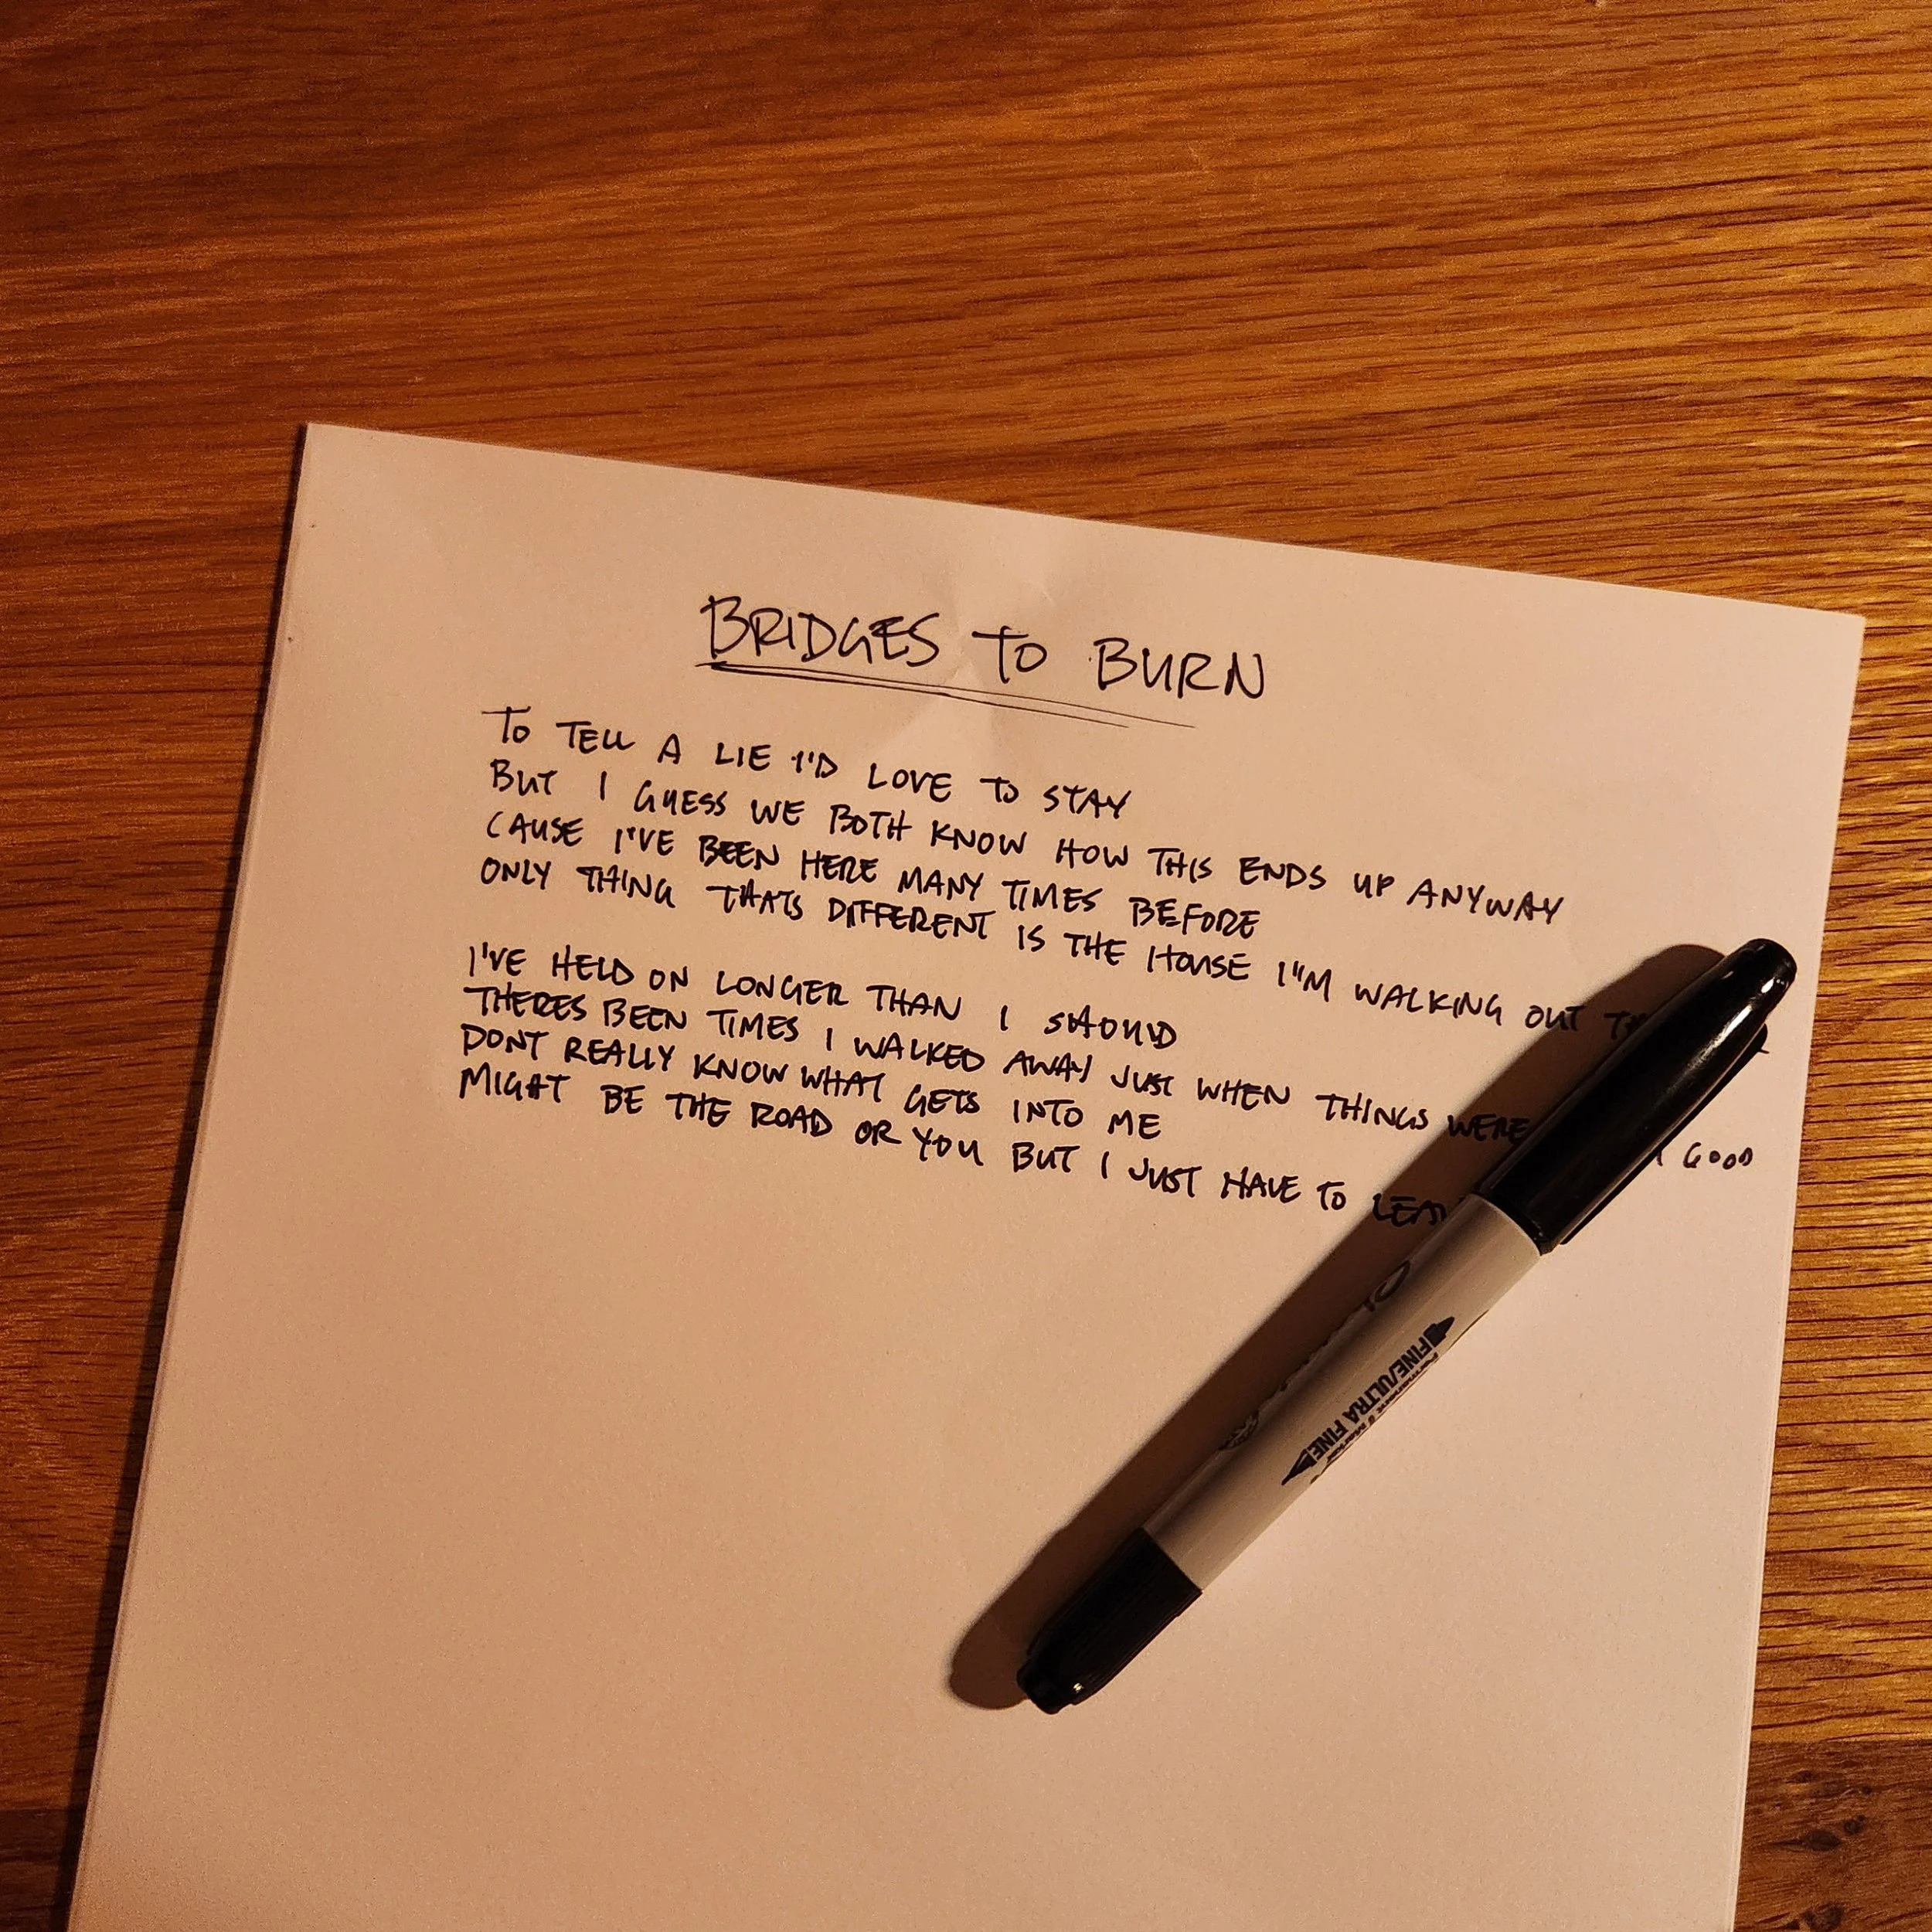 BRIDGES TO BURN
TO TELL A LIE I'D LOVE TO STAY
BUT I GUESS WE BOTH KNOW HOW THIS ENDS UP ANYWAY
CAUSE I'VE BEEN HERE MANY TIMES BEFORE
ONLY THING THATS DIFFERENT IS THE HOUSE I'M WALKING OUT
I'VE HELD ON LONGER THAN I SHOULD
THERES BEEN TIMES I WALKED AWAY JUST WHEN THINGS WERE GOOD
DONT REALLY KNOW WHAT GETS INTO ME
MIGHT BE THE ROAD OR YOU BUT I JUST HAVE TO
FINE/ULTRA FINE
Permanent Marker